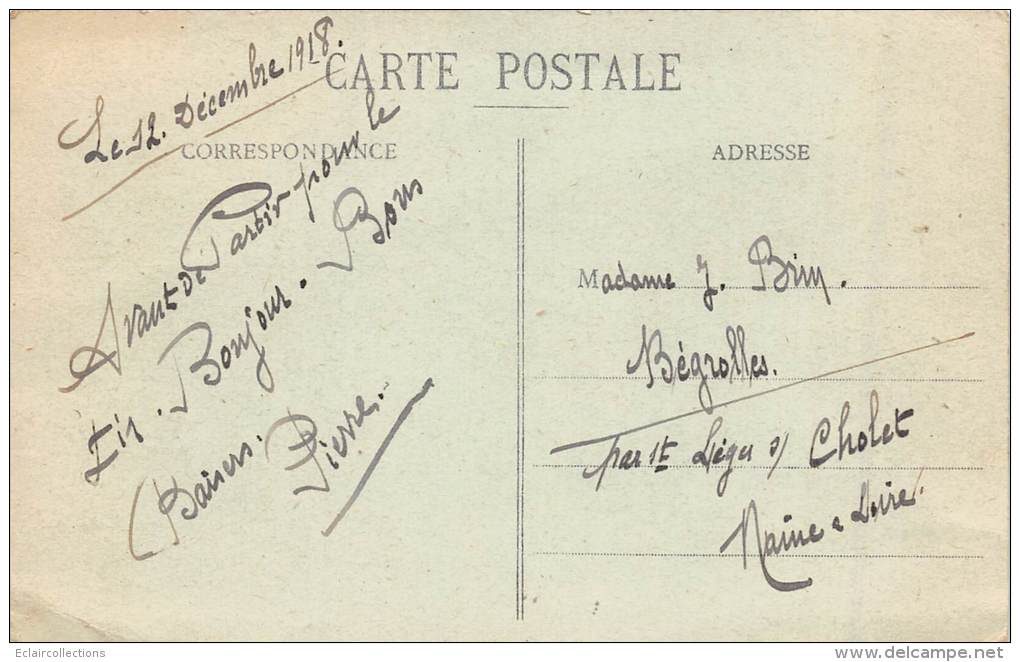 CARTE POSTALE
CORRESPONDANCE
Le 12. Décembre 1918.
Avant de Partir pour le
Bonjour. Bons
Baisers.
Pierre.
ADRESSE
Madame J. Brin.
Bégrolles.
par St Léger s/ Cholet
Maine & Loire.
Eclaircollections
www.delcampe.net